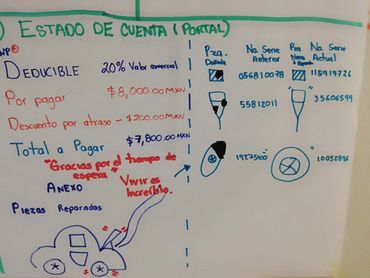 ) ESTADO DE CUENTA (PORTAL)
DEDUCIBLE 20% Valor comercial
Por pagar $8,000.00 MXN
Descuento por atraso - $200.00 MXN
Total a Pagar $7,800.00 MXN
"Gracias por el tiempo de
espera"
ANEXO
Vivir es
increíble.
Piezas Reparadas
Pza. Dañada No. Serie Anterior Pza Nueva No. Serie Actual
056810078 115919726
55812011 35606594
19275100 10052896